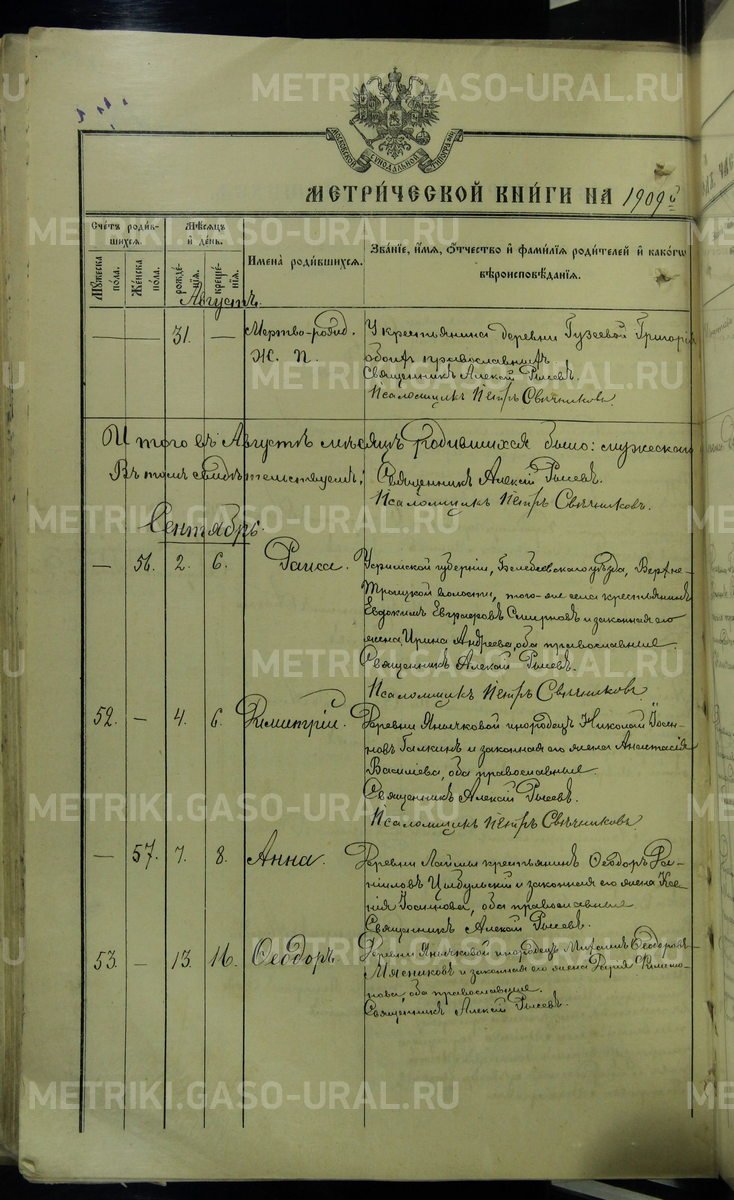 METRIKI.GASO-URAL.RU
МОСКОВСКОЙ СѴНОДАЛЬНОЙ ТИПОГРАФІИ
МЕТРИ́ЧЕСКОЙ КНИ́ГИ НА 1909й
Счетъ роди́вшихся.
Мꙋжеска по́ла.
Же́нска по́ла.
Мѣ́сяцъ и де́нь.
рожде́нїя.
креще́нїя.
Имена̀ роди́вшихся.
Зва́нїе, и́мя, о́тчество и фами́лїя роди́телей и како́гѡ вѣроисповѣ́данїя.
Августъ.
— — 31. — Мертво-рожд. У крестьянина деревни Гузеевой Григорія
Ж. П. обоихъ православныхъ.
Священникъ Алексій Рысевъ.
Псаломщикъ Петръ Свѣчниковъ.
Итого въ Августѣ мѣсяцѣ родившихся было: мужескаго
Въ томъ свидѣтельствуемъ: Священникъ Алексій Рысевъ.
Псаломщикъ Петръ Свѣчниковъ.
Сентябрь.
— 56. 2. 6. Раиса. Уфимской губерніи, Белебеевскаго уѣзда, Верхне-
Троицкой волости, того-же села крестьянинъ
Евдокимъ Евграфовъ Смирновъ и законная его
жена Ирина Андреева, оба православные.
Священникъ Алексій Рысевъ.
Псаломщикъ Петръ Свѣчниковъ
52. — 4. 6. Димитрій. Деревни Янычковой инородецъ Николай Іоси-
новъ Галкинъ и законная его жена Анастасія
Василіева, оба православные.
Священникъ Алексій Рысевъ.
Псаломщикъ Петръ Свѣчниковъ.
— 57. 7. 8. Анна. Деревни Лаймы крестьянинъ Ѳеодоръ
Цимбульскій и законная его жена Ксе-
нія оба православные
Священникъ Алексій Рысевъ.
53. — 13. 16. Ѳеодоръ. Деревни Янычковой инородецъ Ѳеодоровъ
Мясниковъ и законная его жена Дарія
оба православные.
Священникъ Алексій Рысевъ.